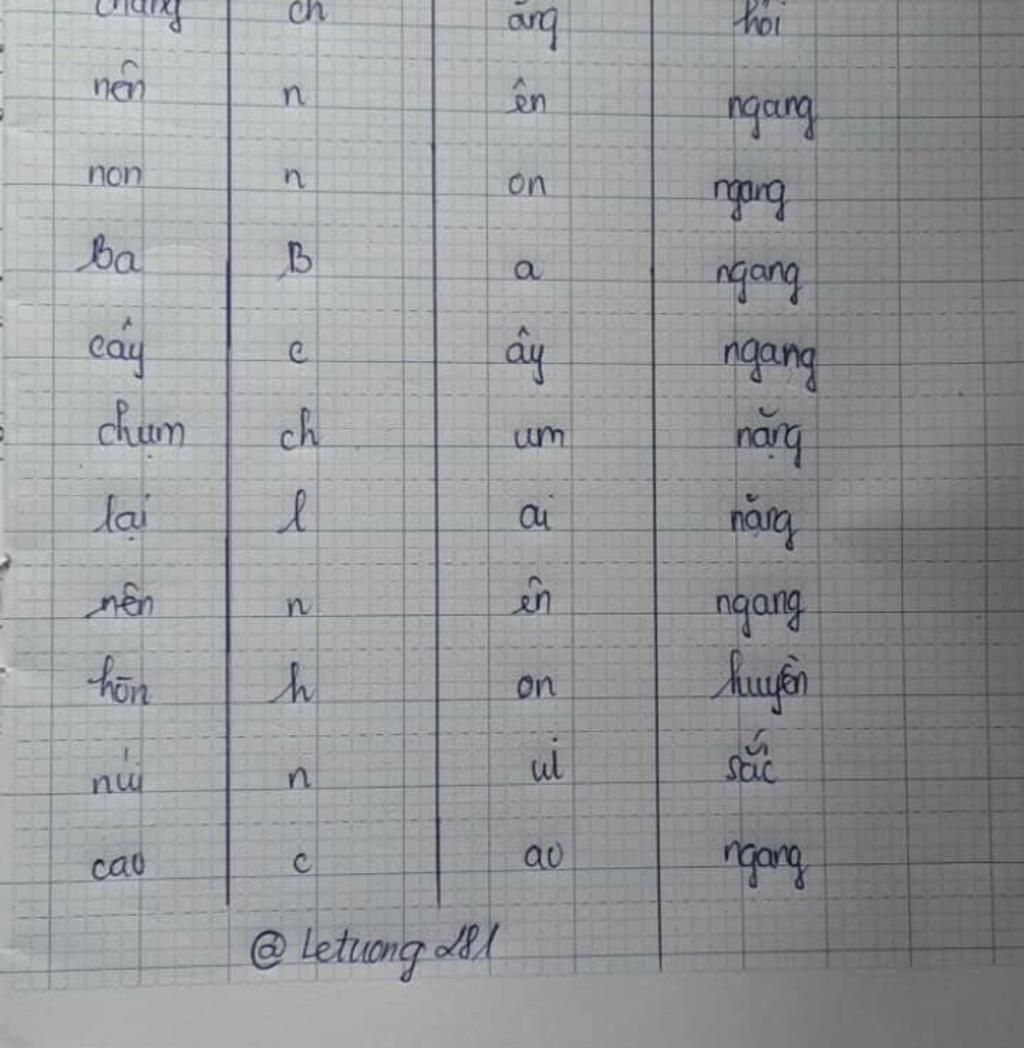 ch ăng hỏi
nên n ên ngang
non n on ngang
Ba B a ngang
cây c ây ngang
chụm ch um nặng
lại l ai nặng
nên n ên ngang
hòn h on huyền
núi n ui sắc
cao c ao ngang
@ Letuong 281